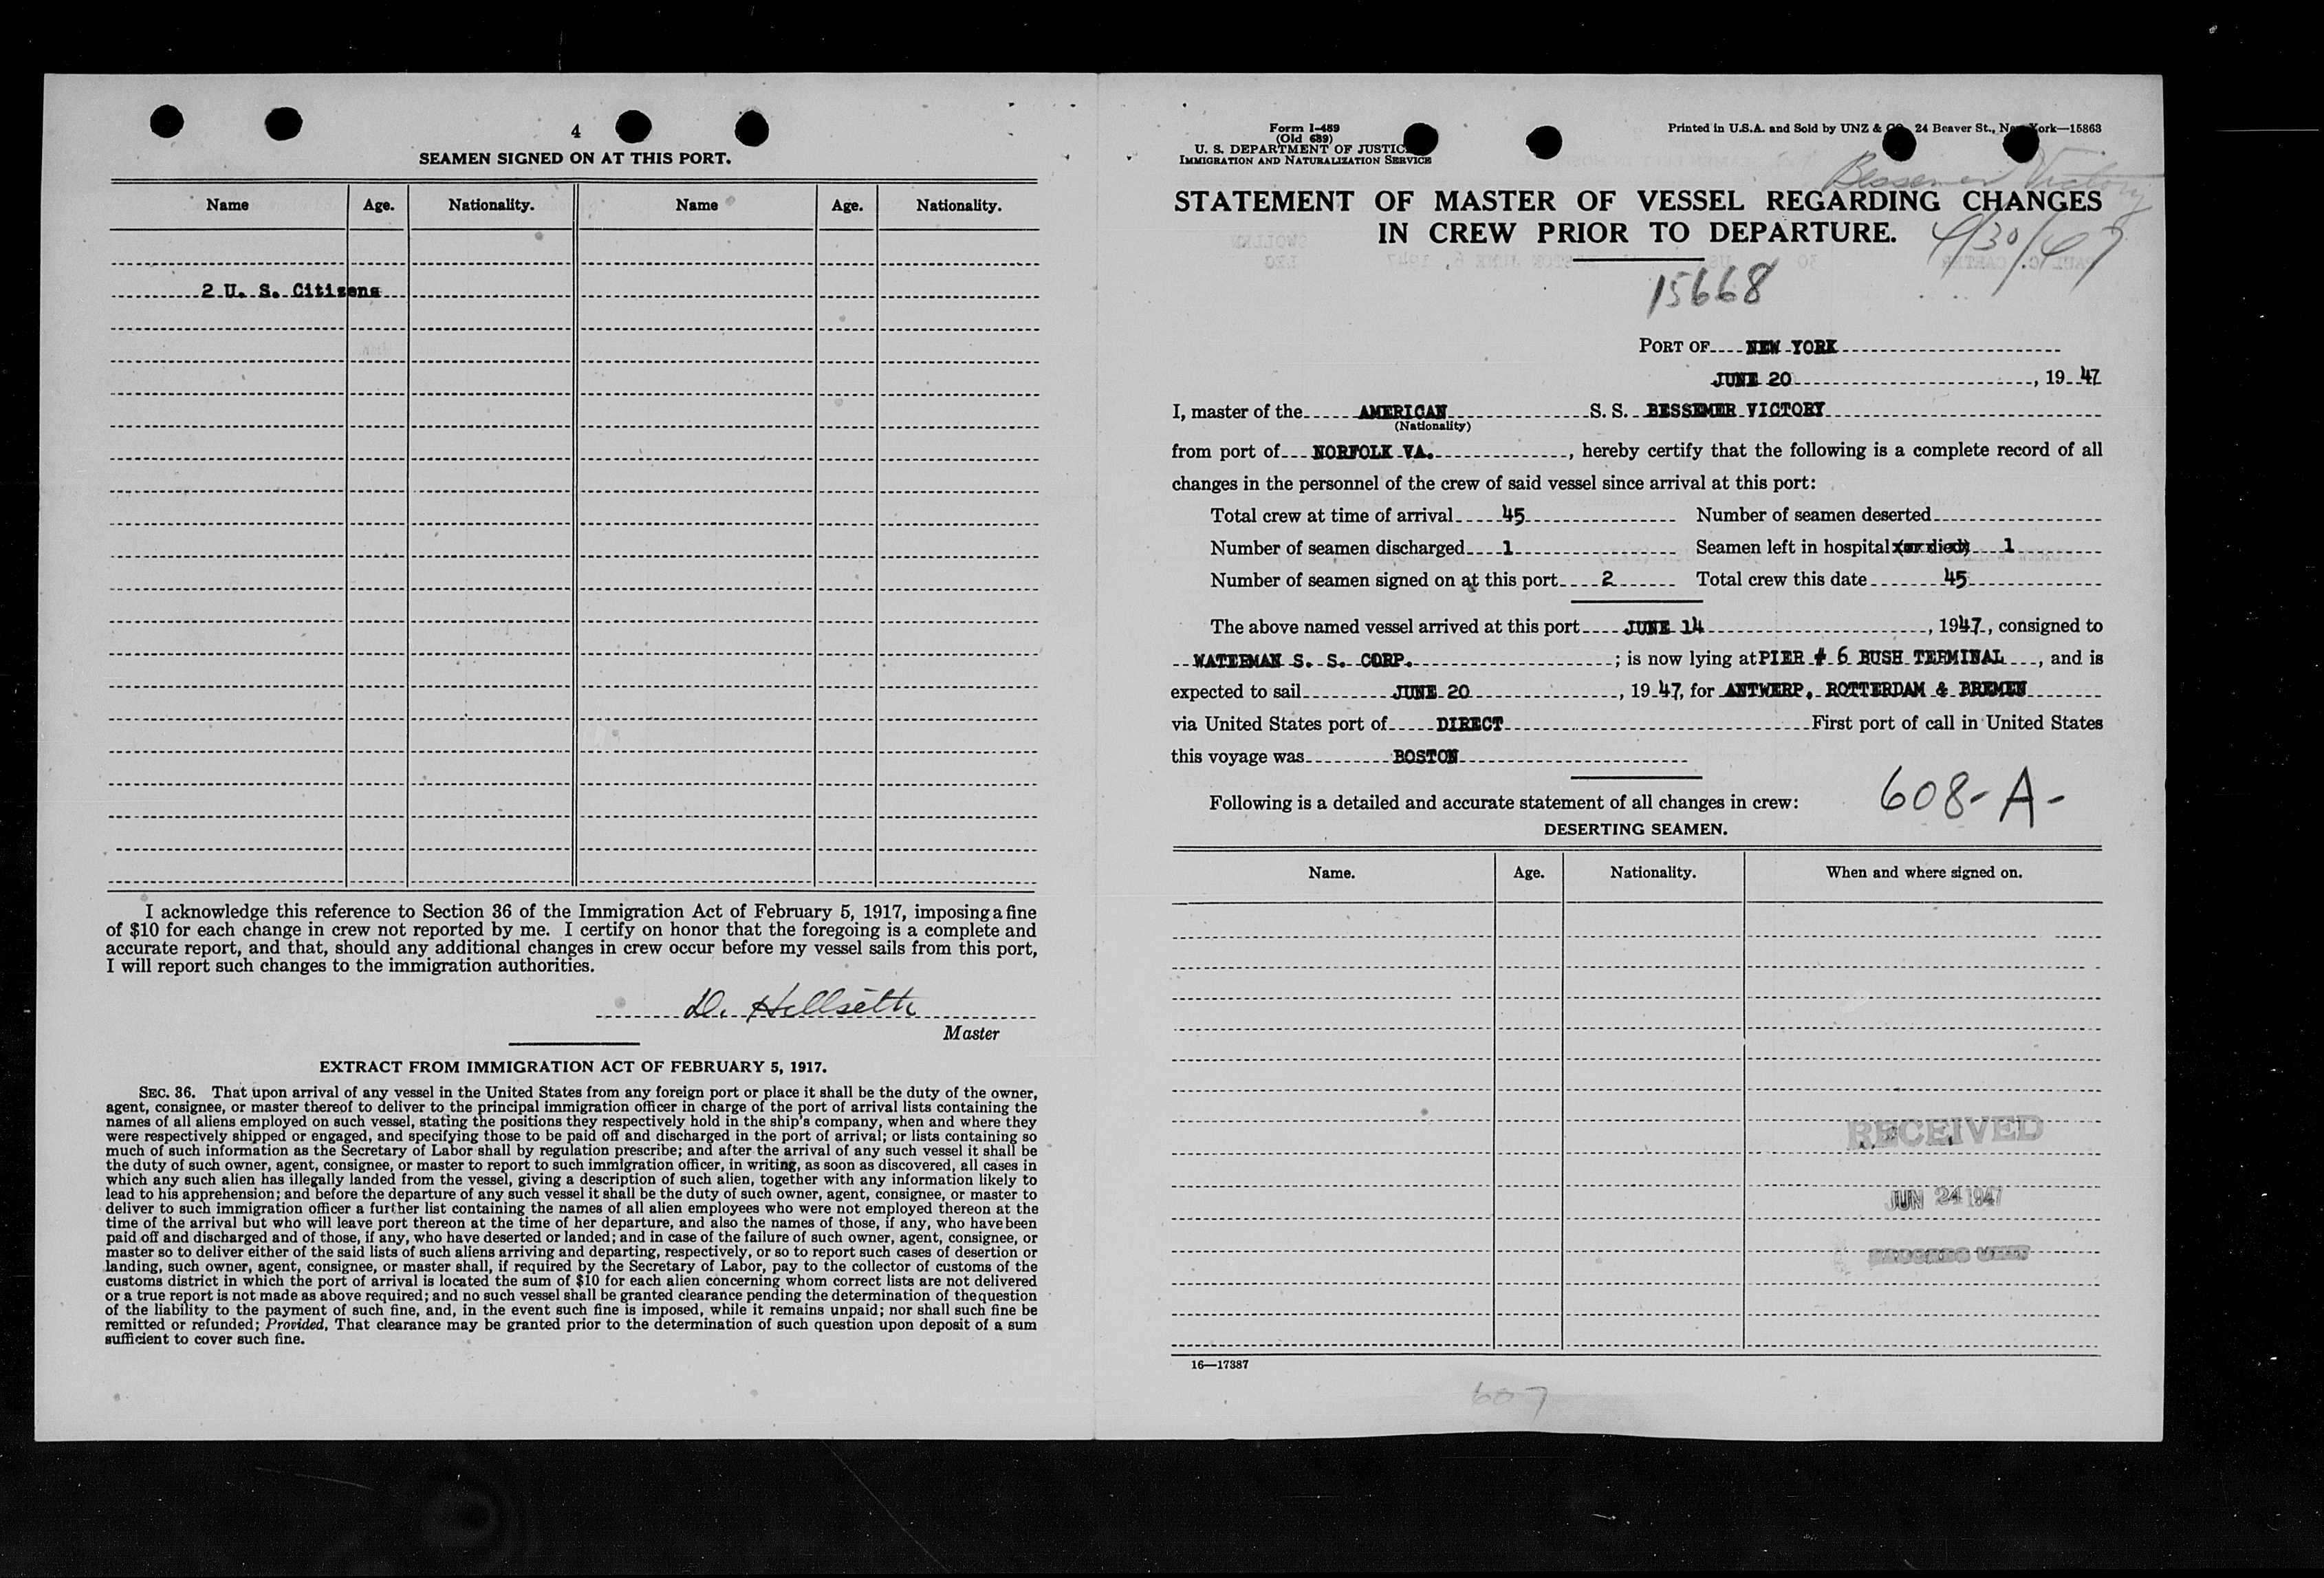 4
SEAMEN SIGNED ON AT THIS PORT.
Name Age. Nationality. Name Age. Nationality.
2 U. S. Citizens
I acknowledge this reference to Section 36 of the Immigration Act of February 5, 1917, imposing a fine
of $10 for each change in crew not reported by me. I certify on honor that the foregoing is a complete and
accurate report, and that, should any additional changes in crew occur before my vessel sails from this port,
I will report such changes to the immigration authorities.
D. Hellseth
Master
EXTRACT FROM IMMIGRATION ACT OF FEBRUARY 5, 1917.
SEC. 36. That upon arrival of any vessel in the United States from any foreign port or place it shall be the duty of the owner,
agent, consignee, or master thereof to deliver to the principal immigration officer in charge of the port of arrival lists containing the
names of all aliens employed on such vessel, stating the positions they respectively hold in the ship's company, when and where they
were respectively shipped or engaged, and specifying those to be paid off and discharged in the port of arrival; or lists containing so
much of such information as the Secretary of Labor shall by regulation prescribe; and after the arrival of any such vessel it shall be
the duty of such owner, agent, consignee, or master to report to such immigration officer, in writing, as soon as discovered, all cases in
which any such alien has illegally landed from the vessel, giving a description of such alien, together with any information likely to
lead to his apprehension; and before the departure of any such vessel it shall be the duty of such owner, agent, consignee, or master to
deliver to such immigration officer a further list containing the names of all alien employees who were not employed thereon at the
time of the arrival but who will leave port thereon at the time of her departure, and also the names of those, if any, who have been
paid off and discharged and of those, if any, who have deserted or landed; and in case of the failure of such owner, agent, consignee, or
master so to deliver either of the said lists of such aliens arriving and departing, respectively, or so to report such cases of desertion or
landing, such owner, agent, consignee, or master shall, if required by the Secretary of Labor, pay to the collector of customs of the
customs district in which the port of arrival is located the sum of $10 for each alien concerning whom correct lists are not delivered
or a true report is not made as above required; and no such vessel shall be granted clearance pending the determination of the question
of the liability to the payment of such fine, and, in the event such fine is imposed, while it remains unpaid; nor shall such fine be
remitted or refunded; Provided, That clearance may be granted prior to the determination of such question upon deposit of a sum
sufficient to cover such fine.
Form I-489
(Old 689)
U. S. DEPARTMENT OF JUSTICE
IMMIGRATION AND NATURALIZATION SERVICE
Printed in U.S.A. and Sold by UNZ & CO. 24 Beaver St., New York—15863
Bessemer Victory
STATEMENT OF MASTER OF VESSEL REGARDING CHANGES
IN CREW PRIOR TO DEPARTURE.
4/30/47
15668
PORT OF NEW YORK
JUNE 20, 1947
I, master of the AMERICAN S. S. BESSEMER VICTORY
(Nationality)
from port of NORFOLK VA., hereby certify that the following is a complete record of all
changes in the personnel of the crew of said vessel since arrival at this port:
Total crew at time of arrival 45 Number of seamen deserted
Number of seamen discharged 1 Seamen left in hospital (or died) 1
Number of seamen signed on at this port 2 Total crew this date 45
The above named vessel arrived at this port JUNE 14, 1947, consigned to
WATERMAN S. S. CORP. ; is now lying at PIER # 6 BUSH TERMINAL, and is
expected to sail JUNE 20, 1947, for ANTWERP, ROTTERDAM & BREMEN
via United States port of DIRECT First port of call in United States
this voyage was BOSTON
608-A-
Following is a detailed and accurate statement of all changes in crew:
DESERTING SEAMEN.
Name. Age. Nationality. When and where signed on.
RECEIVED
JUN 24 1947
RECORDS UNIT
16—17387
607